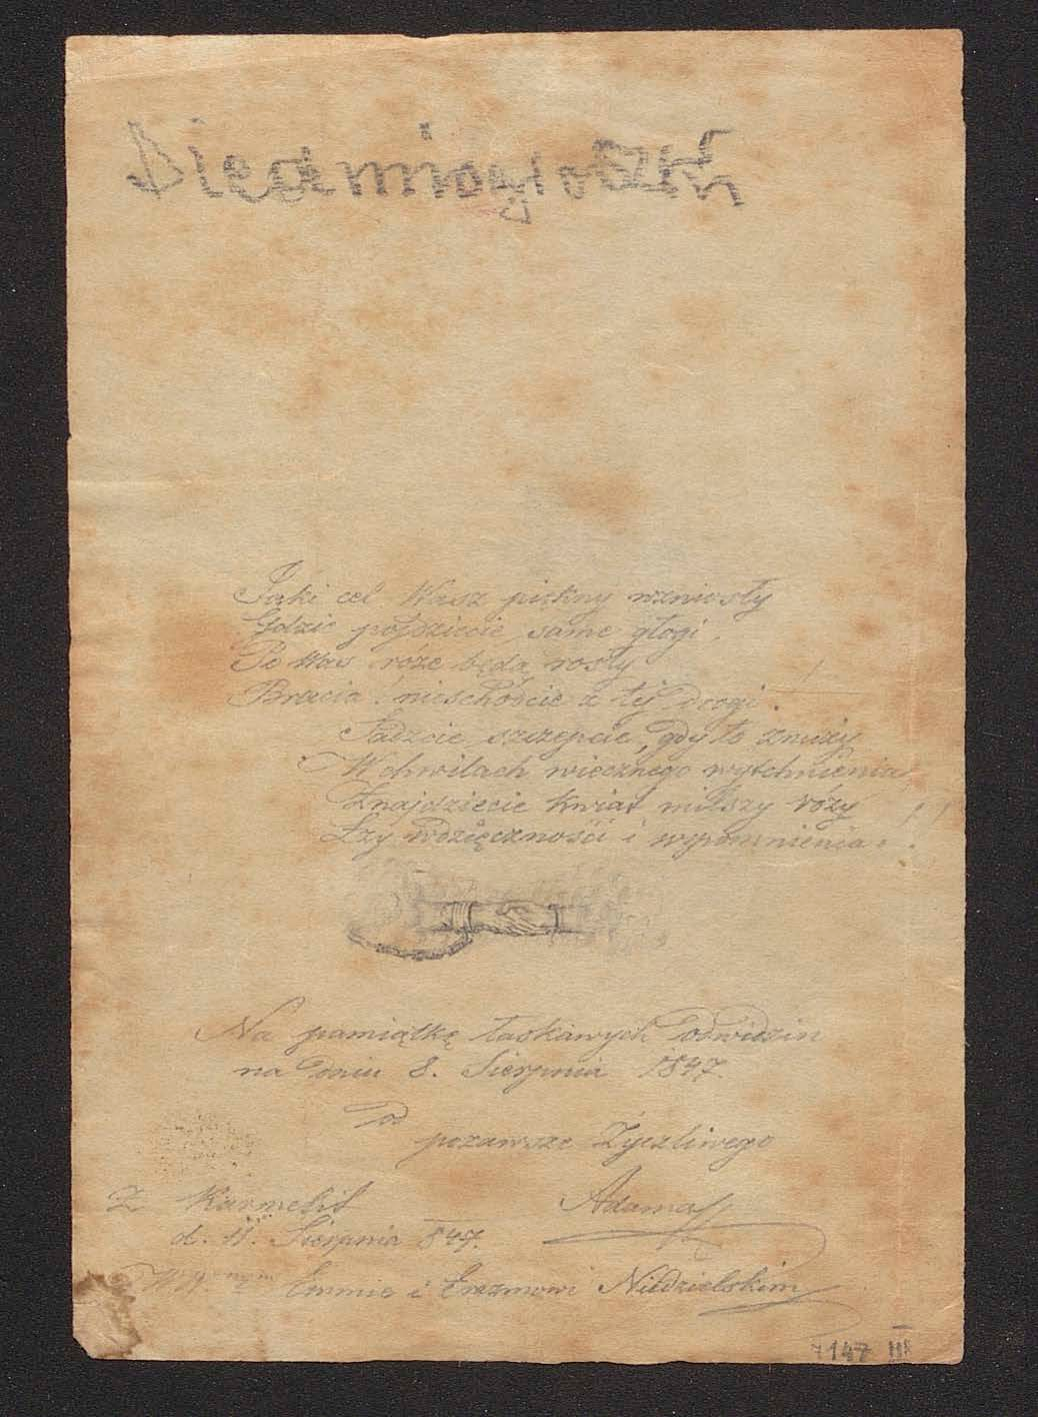 Jaki cel Wasz piękny wzniosły
Gdzie pójdziecie same głogi.
Po Was róże będą rosły
Bracia! nieschodźcie z tej drogi.
Sadźcie szczepcie, gdy to znuży
W chwilach wiecznego wytchnienia
Znajdziecie kwiat milszy róży
Łzy wdzięczności i wspomnienia.
Na pamiątkę łaskawych odwiedzin
na dniu 8. Sierpnia 1847.
od
pozawsze Życzliwego
Z Karmelit Adama
d. 11. Sierpnia 847.
Emmie i Erazmowi Niedzielskim
7147 III